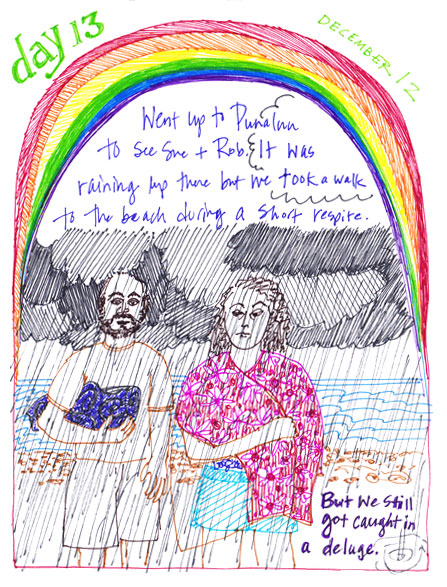 day 13
DECEMBER 12
Went up to Punaluu
to see Sue + Rob. It was
raining up there but we took a walk
to the beach during a short respite.
But we still
got caught in
a deluge.